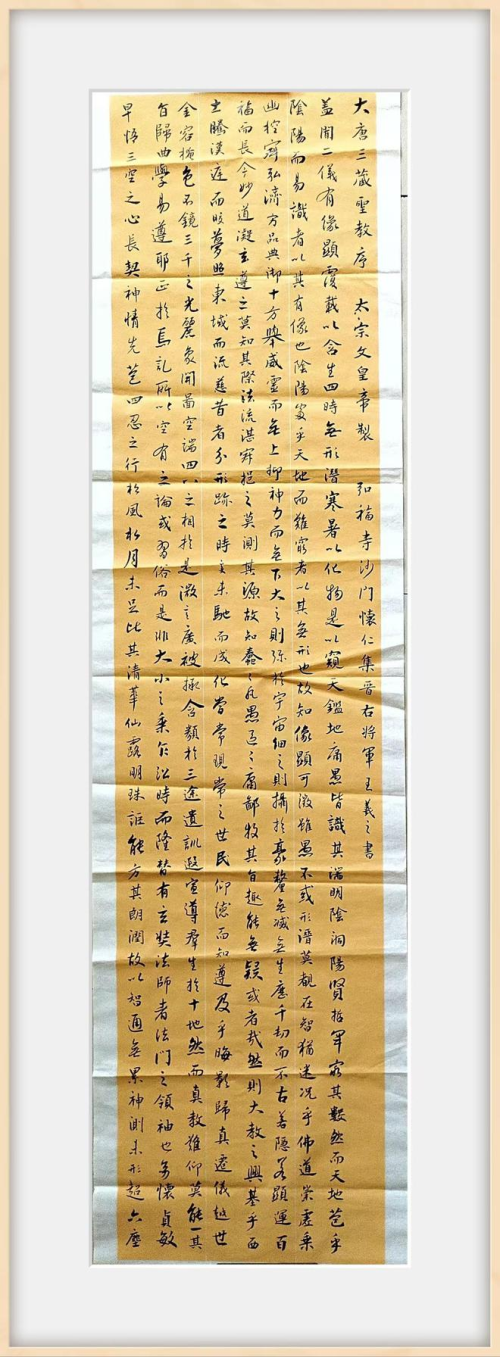 大唐三藏聖教序 太宗文皇帝製 弘福寺沙門懷仁集晉右將軍王羲之書
盖聞二儀有像顯覆載以含生四時無形潛寒暑以化物是以窺天鑑地庸愚皆識其端明陰洞陽賢哲罕窮其數然而天地苞乎
陰陽而易識者以其有像也陰陽處乎天地而難窮者以其無形也故知像顯可徵雖愚不或形潛莫覩在智猶迷況乎佛道崇虛乘
幽控寂弘濟万品典御十方舉威靈而無上抑神力而無下大之則弥於宇宙細之則攝於豪釐無滅無生歷千劫而不古若隱若顯運百
福而長今妙道凝玄遵之莫知其際法流湛寂挹之莫測其源故知蠢蠢凡愚區區庸鄙投其旨趣能無疑或者哉然則大教之興基乎西
土騰漢庭而皎夢照東域而流慈昔者分形跡之時言未馳而成化當常現常之世民仰德而知遵及乎晦影歸真遷儀越世
金容掩色不鏡三千之光麗象開圖空端四八之相於是微言廣被拯含類於三途遺訓遐宣導群生於十地然而真教難仰莫能一其
旨歸曲學易遵耶正於焉糺所以空有之論或習俗而是非大小之乘乍沿時而隆替有玄奘法師者法門之領袖也幼懷貞敏
早悟三空之心長契神情先苞四忍之行松風水月未足比其清華仙露明珠詎能方其朗潤故以智通無累神測未形超六塵